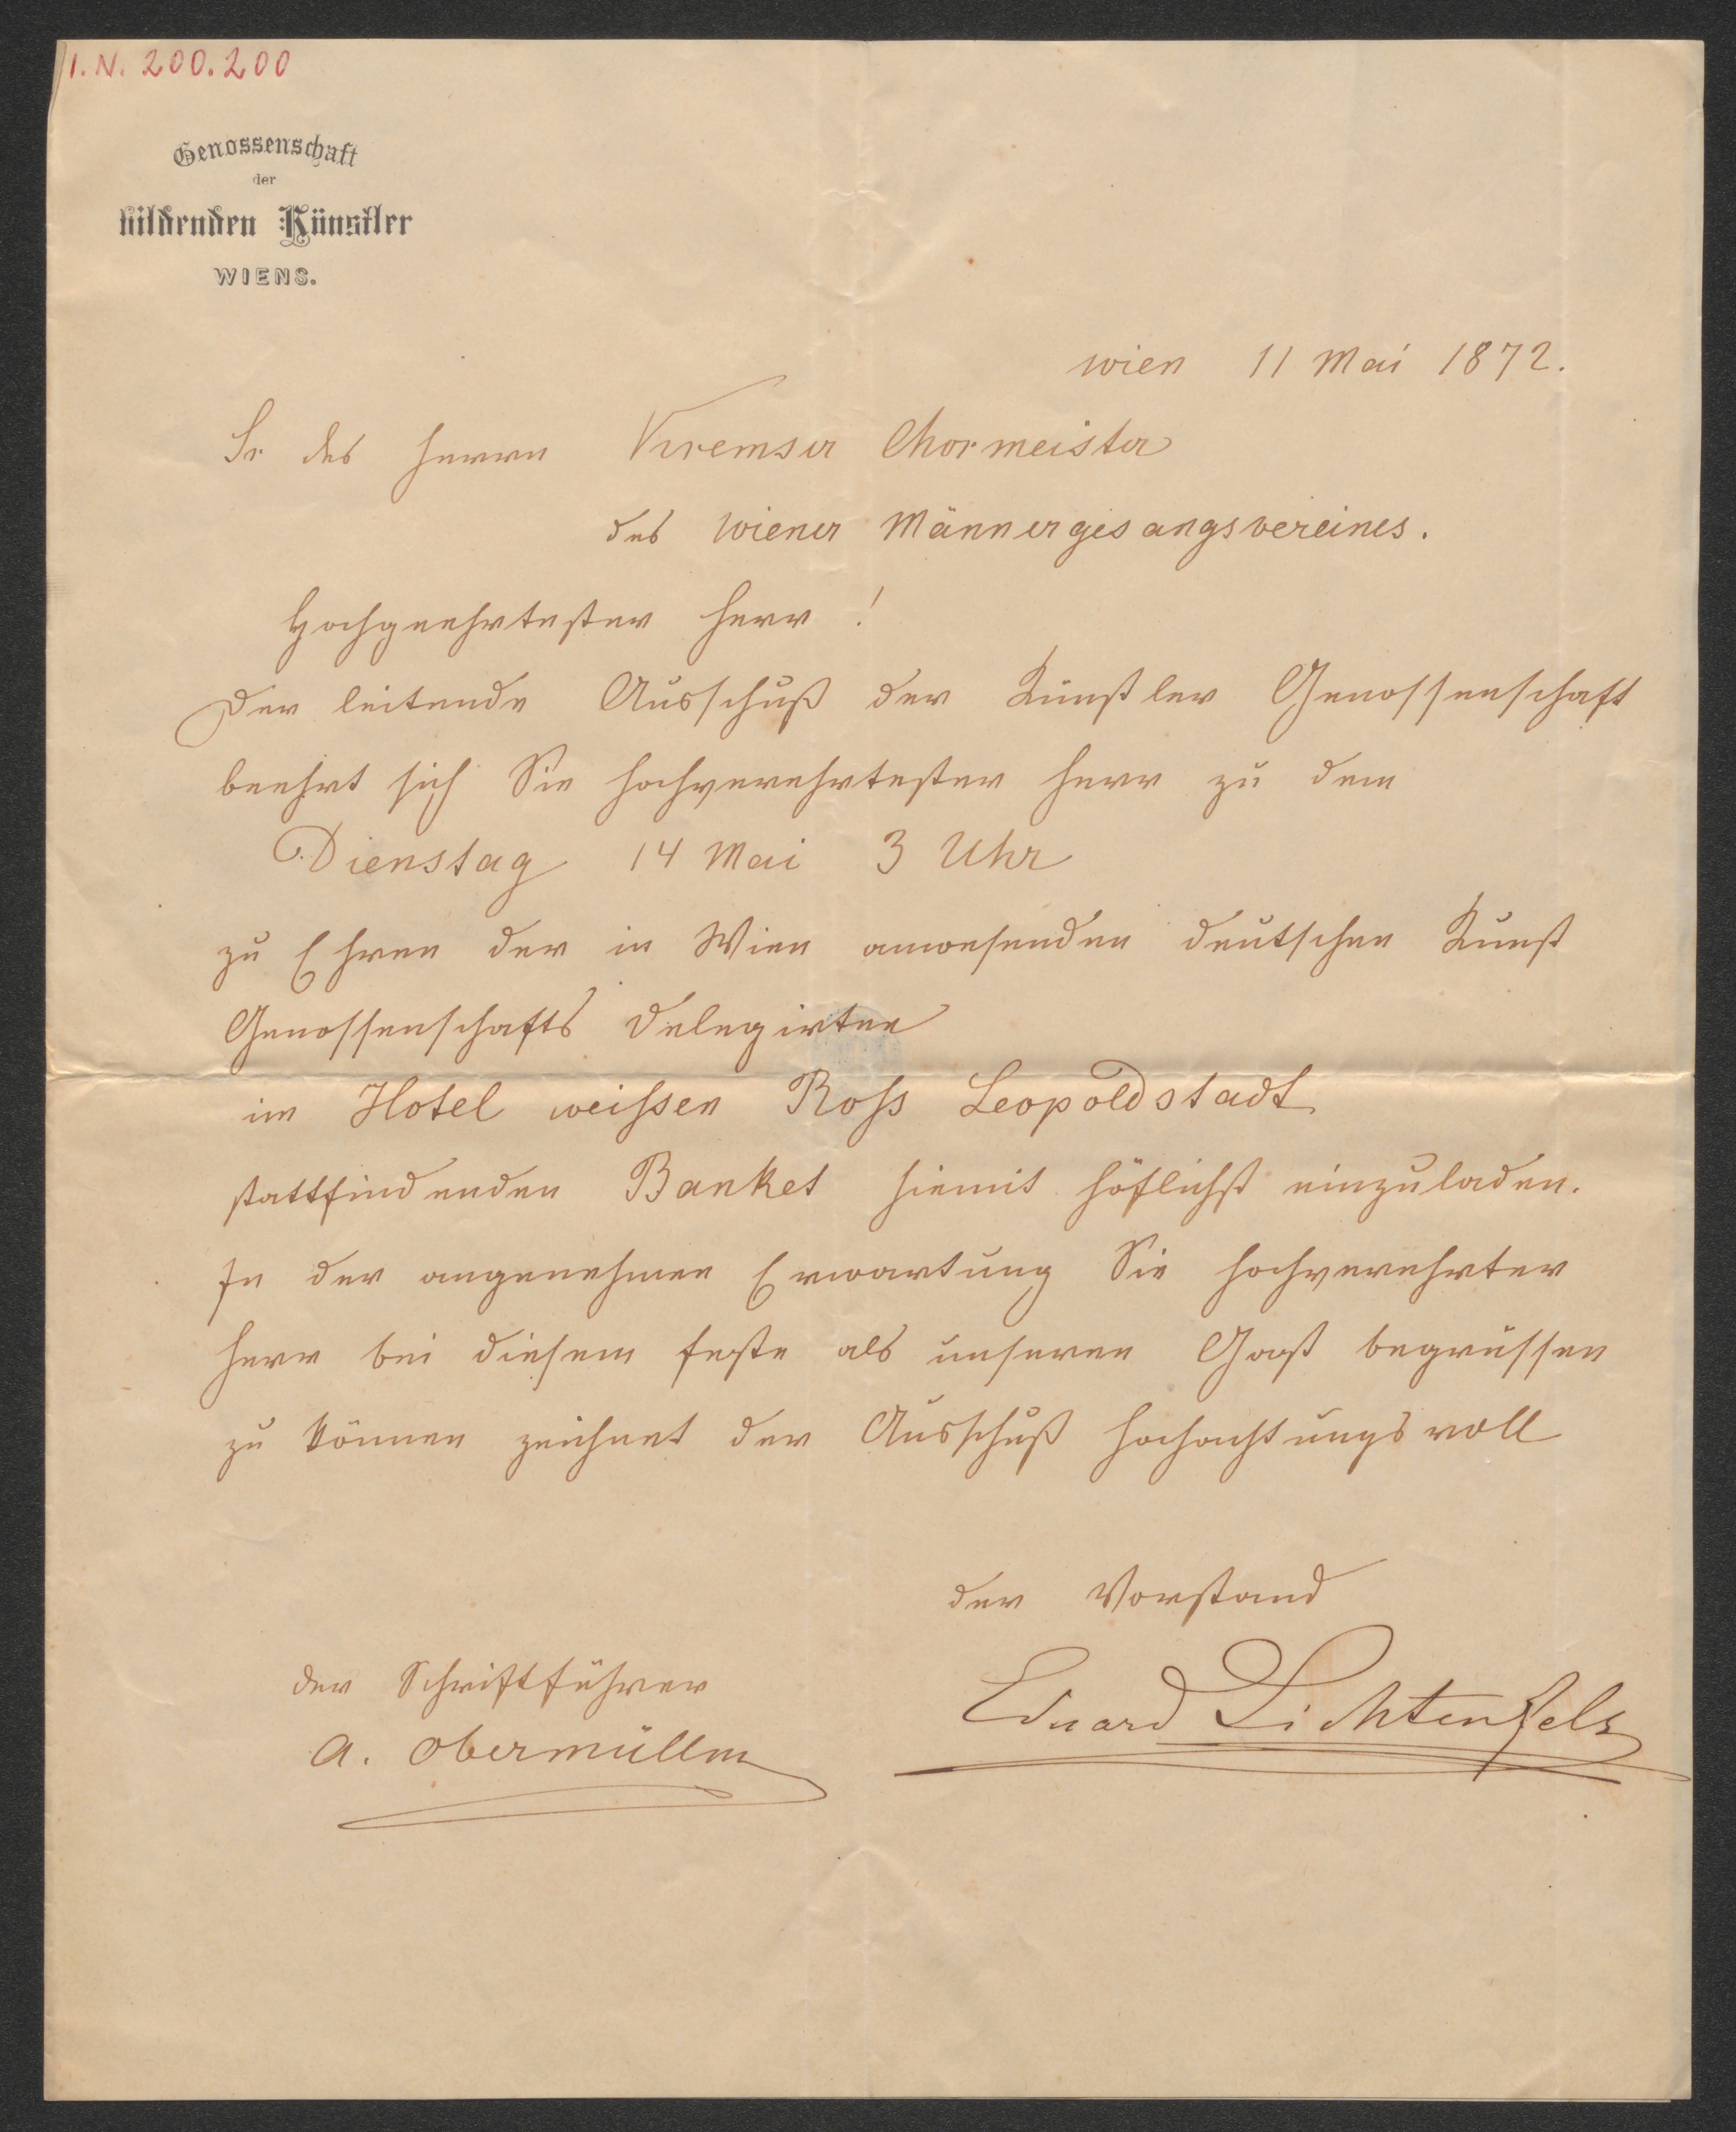 I. N. 200.200
Genossenschaft
der
bildenden Künstler
WIENS.
Wien 11 Mai 1872.
Sr des Herrn Kremser Chormeister
des Wiener Männergesangsvereines.
Hochgeehrtester Herr!
Der leitende Ausschuß der Künstler Genossenschaft
beehrt sich Sie hochverehrtester Herr zu dem
Dienstag 14 Mai 3 Uhr
zu Ehren der in Wien anwesenden deutschen Kunst
Genossenschafts Delegirten
im Hotel weissen Ross Leopoldstadt
stattfindenden Banket hiemit höflichst einzuladen.
In der angenehmen Erwartung Sie hochverehrter
Herr bei diesem Feste als unseren Gast begrüssen
zu können zeichnet der Ausschuß hochachtungsvoll
der Vorstand
Eduard Lichtenfels
der Schriftführer
A. Obermüllner